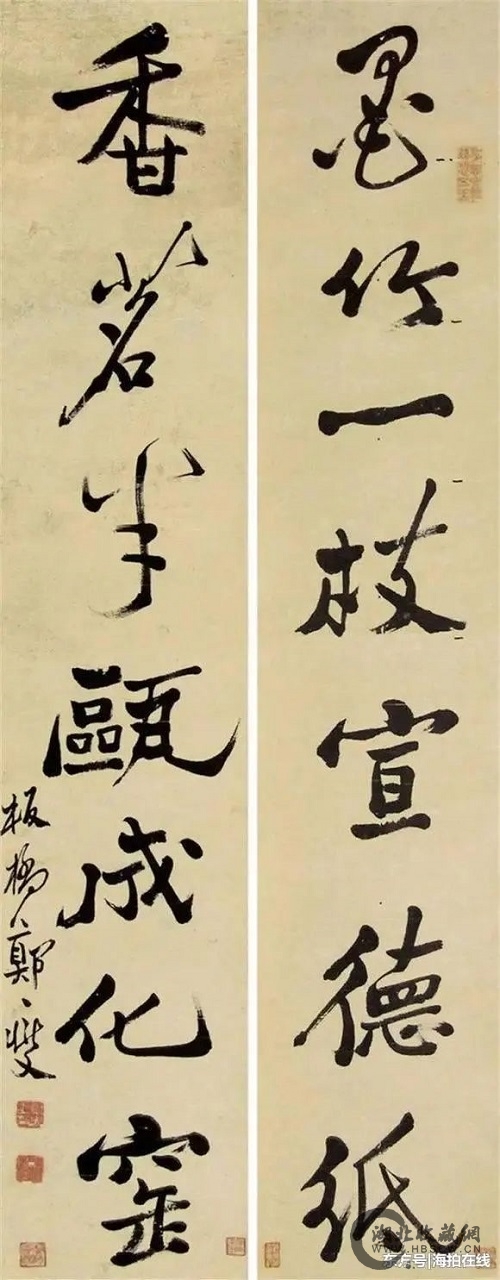 墨竹一枝宣德紙
香茗半甌成化窑
板橋鄭燮
湖北收藏網
东方号|海拍在线